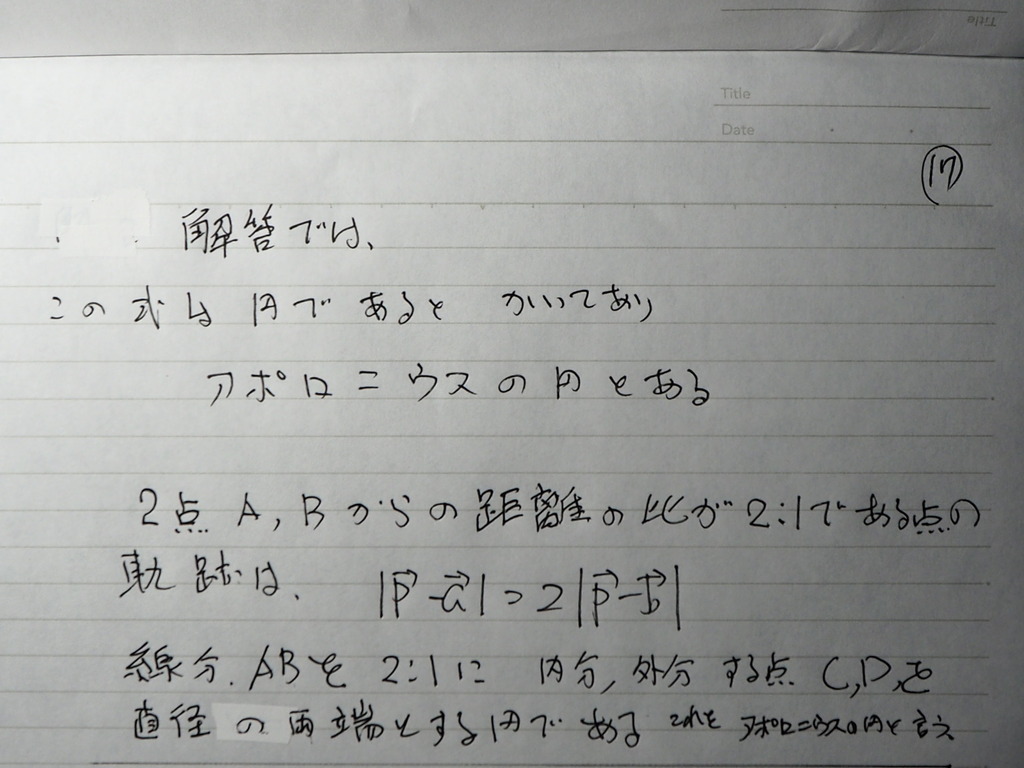 Title
Title
Date
⑰
解答では、
この式は円であると かいてあり
アポロニウスの円とある
2点 A, B からの距離の比が 2:1である点の
軌跡は、 |p⃗-a⃗| = 2|p⃗-b⃗|
線分 ABを 2:1に 内分, 外分 する点 C, D, を
直径 の両端とする円である これを アポロニウスの円と言う